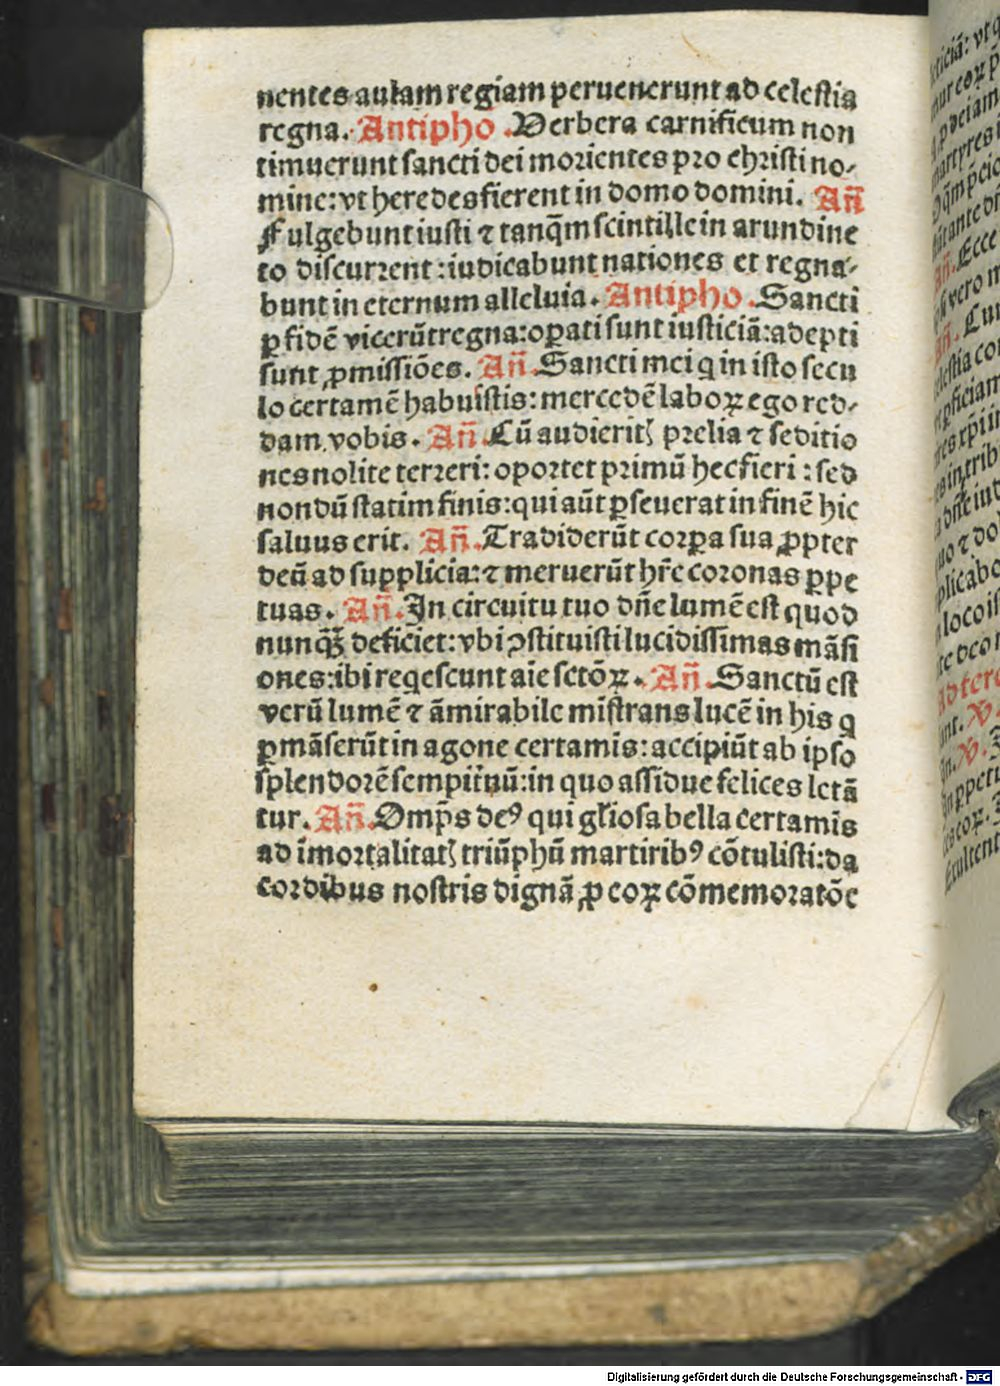 nentes aulam regiam peruenerunt ad celestia
regna. Antipho. Verbera carnificum non
timuerunt sancti dei morientes pro christi no-
mine: vt heredes fierent in domo domini. Añ
Fulgebunt iusti ⁊ tanq̃m scintille in arundine
to discurrent: iudicabunt nationes et regna-
bunt in eternum alleluia. Antipho. Sancti
ꝑ fidẽ vicerũt regna: oꝑati sunt iusticiã: adepti
sunt ꝓmissiões. Añ. Sancti mei q in isto secu
lo certamẽ habuistis: mercedẽ laboꝝ ego red-
dam vobis. Añ. Cũ audieritꝭ prelia ⁊ seditio
nes nolite terreri: oportet primũ hec fieri: sed
nondũ statim finis: qui aũt ꝑseuerat in finẽ hic
saluus erit. Añ. Tradiderũt corꝑa sua ꝓpter
deũ ad supplicia: ⁊ meruerũt hr̃e coronas ꝑpe
tuas. Añ. In circuitu tuo dñe lumẽ est quod
nunq̃ꝫ deficiet: vbi ꝯstituisti lucidissimas mãsi
ones: ibi reqescunt aie sctõꝝ. Añ. Sanctũ est
verũ lumẽ ⁊ ãmirabile mistrans lucẽ in his q
ꝑmãserũt in agone certamis: accipiũt ab ipso
splendorẽ sempitñũ: in quo assidue felices letã
tur. Añ. Omp̃s deꝰ qui gl̃iosa bella certamis
ad ĩmortalitatꝭ triũphũ martiribꝰ cõtulisti: da
cordibus nostris dignã ꝓ eoꝝ cõmemoratõe
Digitalisierung gefördert durch die Deutsche Forschungsgemeinschaft - DFG